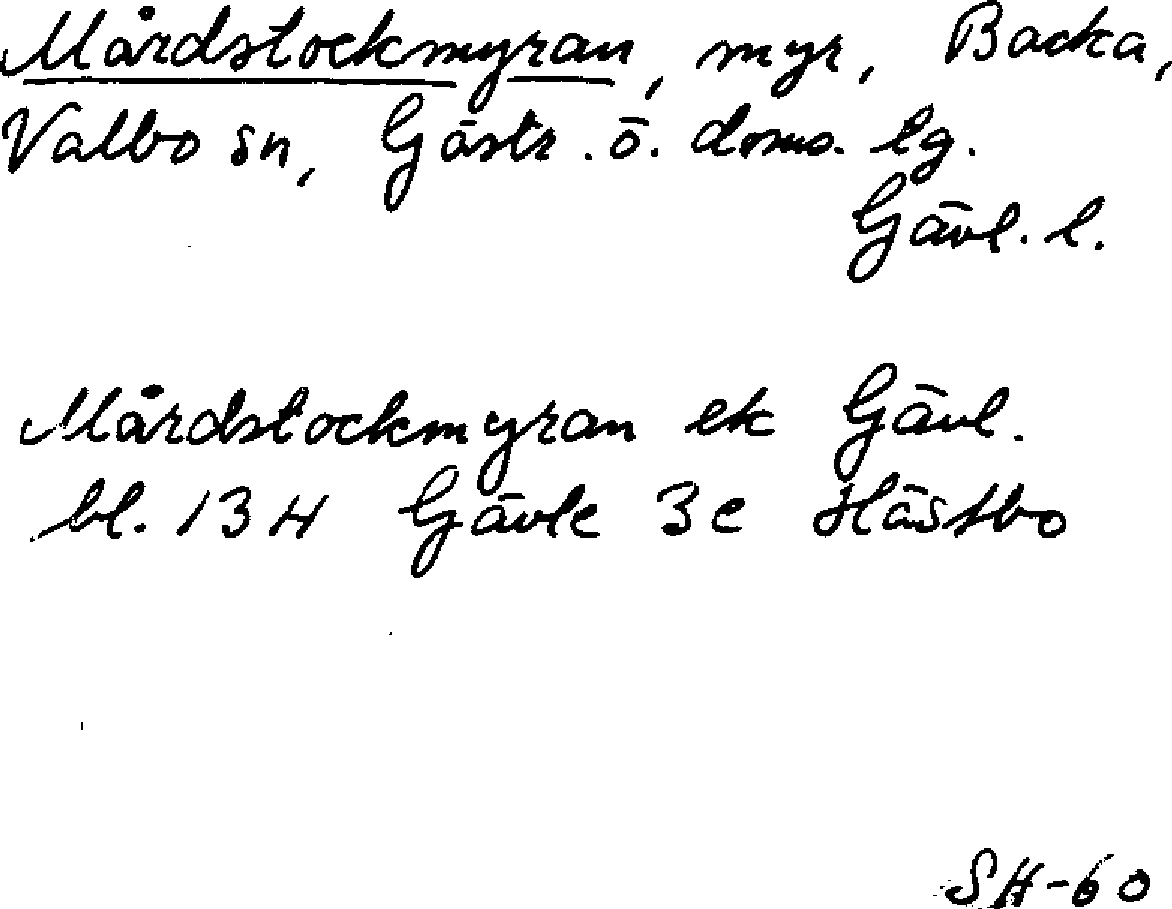 Mårdstockmyran, myr, Backa,
Valbo sn, Gästr. ö. doms. lg.
Gävl. l.
Mårdstockmyran ek Gävl.
bl. 134 Gävle 3c Hästbo
SH-60